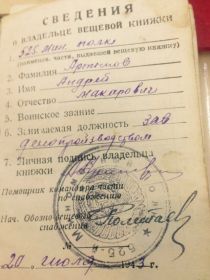 СВЕДЕНИЯ
о ВЛАДЕЛЬЦЕ ВЕЩЕВОЙ КНИЖКИ
525 Мин. полк
(наименов. части, выдавшей вещевую книжку)
2. Фамилия
3. Имя Андрей
4. Отчество Макарович
5. Воинское звание -
6. Занимаемая должность Зав
делопроизводством
7. Личная подпись владельца
книжки
Помощник командира части
по снабжению
Нач. Обозно-вещевого
снабжения
№
20 июля 1943 г.